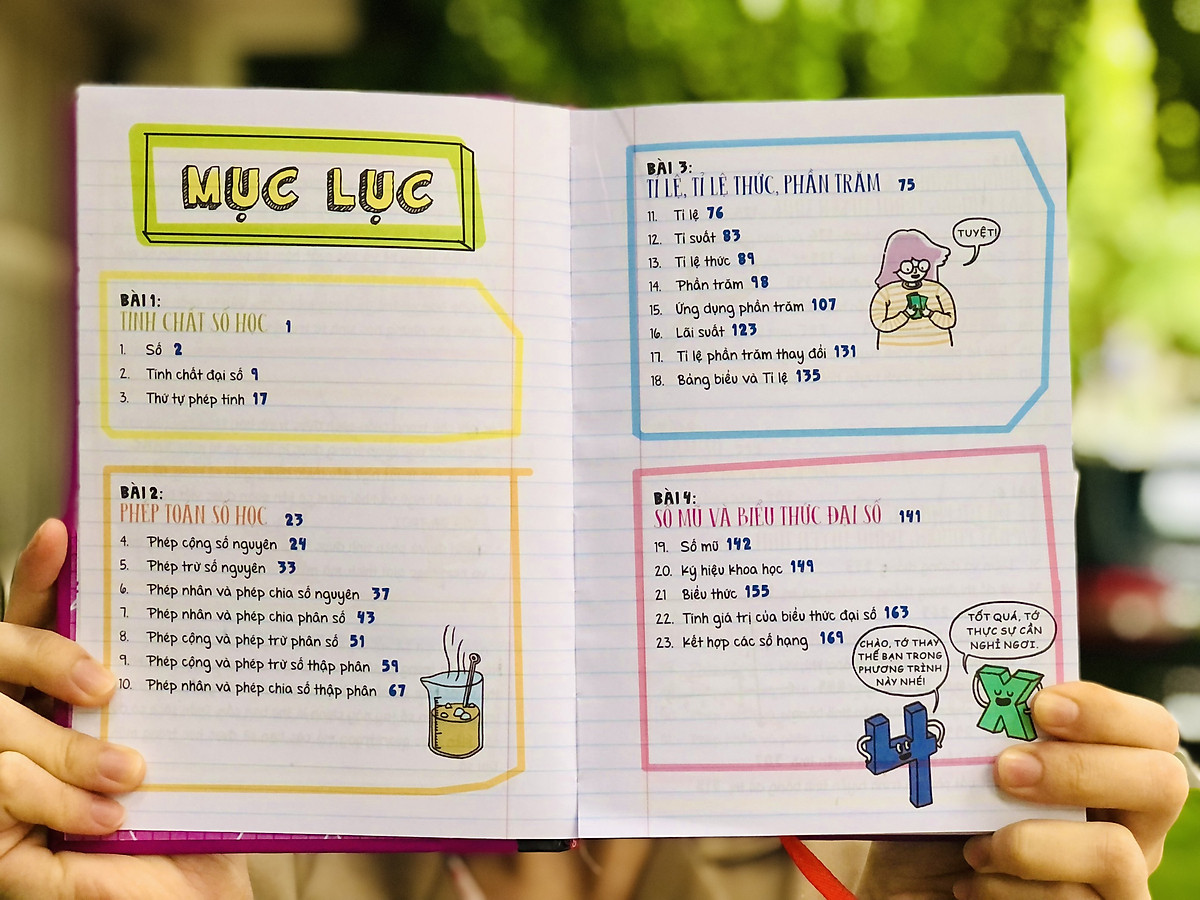 MỤC LỤC
BÀI 1:
TÍNH CHẤT SỐ HỌC 1
1. Số 2
2. Tính chất đại số 9
3. Thứ tự phép tính 17
BÀI 2:
PHÉP TOÁN SỐ HỌC 23
4. Phép cộng số nguyên 24
5. Phép trừ số nguyên 33
6. Phép nhân và phép chia số nguyên 37
7. Phép nhân và phép chia phân số 43
8. Phép cộng và phép trừ phân số 51
9. Phép cộng và phép trừ số thập phân 59
10. Phép nhân và phép chia số thập phân 67
BÀI 3:
TỈ LỆ, TỈ LỆ THỨC, PHẦN TRĂM 75
11. Tỉ lệ 76
12. Tỉ suất 83
13. Tỉ lệ thức 89
14. Phần trăm 98
15. Ứng dụng phần trăm 107
16. Lãi suất 123
17. Tỉ lệ phần trăm thay đổi 131
18. Bảng biểu và Tỉ lệ 135
TUYỆT!
BÀI 4:
SỐ MŨ VÀ BIỂU THỨC ĐẠI SỐ 141
19. Số mũ 142
20. Ký hiệu khoa học 149
21 Biểu thức 155
22. Tính giá trị của biểu thức đại số 163
23. Kết hợp các số hạng 169
CHÀO, TỚ THAY
THẾ BẠN TRONG
PHƯƠNG TRÌNH
NÀY NHÉ!
TỐT QUÁ, TỚ
THỰC SỰ CẦN
NGHỈ NGƠI.
4
X